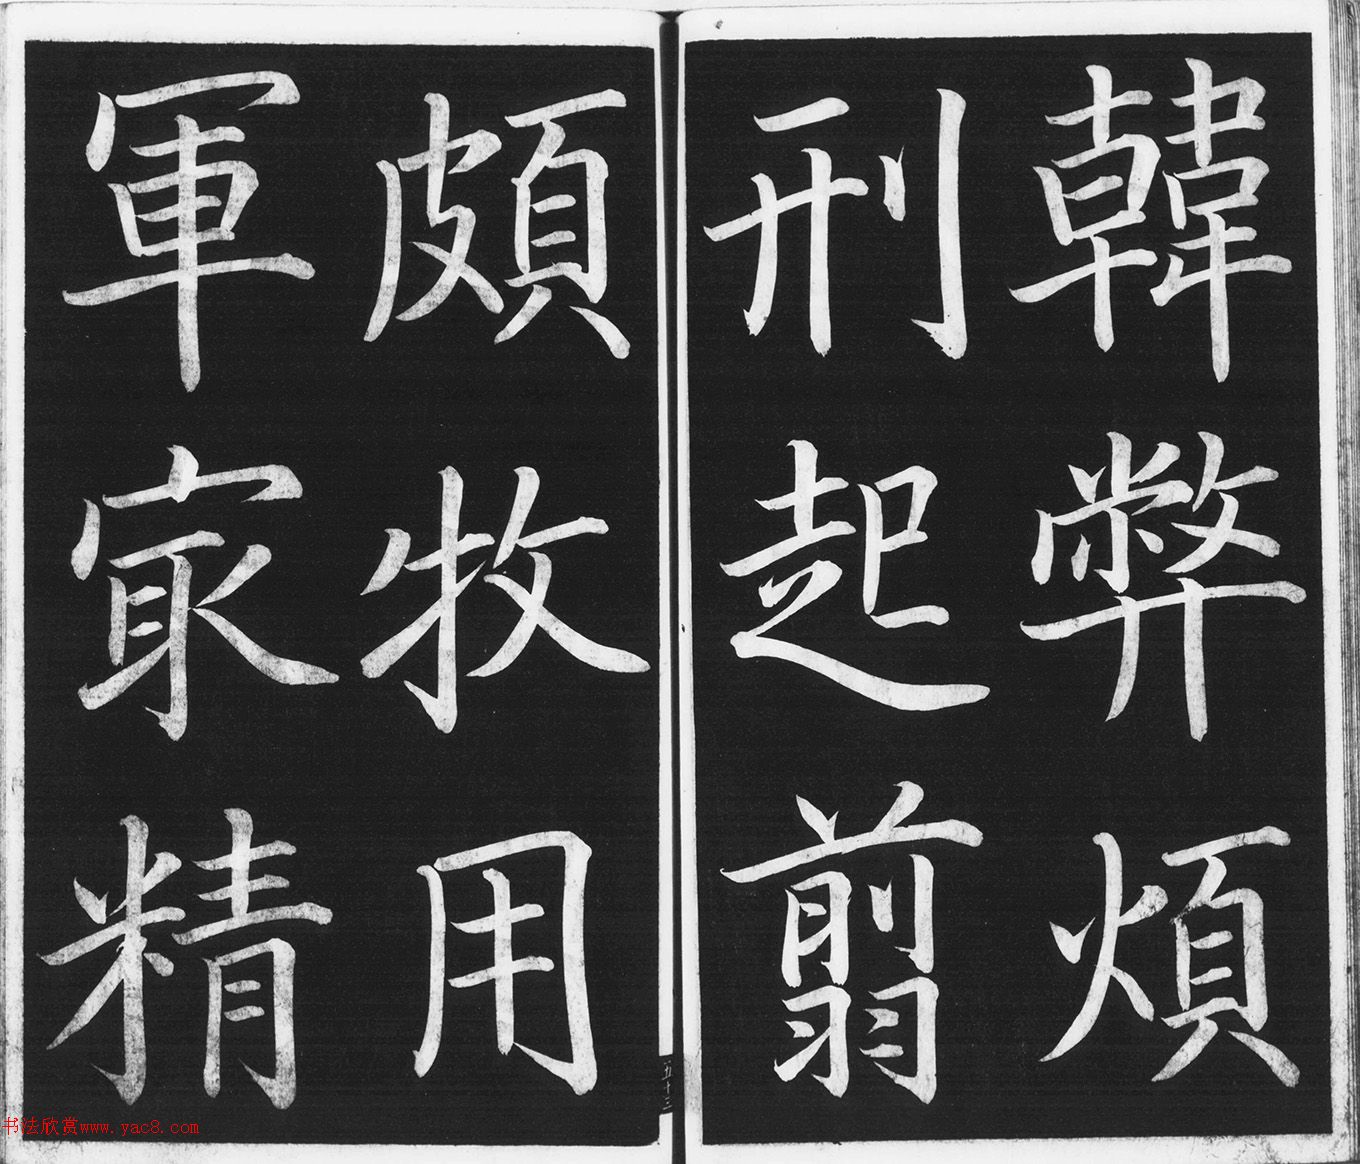 韓弊煩
刑起翦
頗牧用
軍㝡精
五十三
书法欣赏www.yac8.com